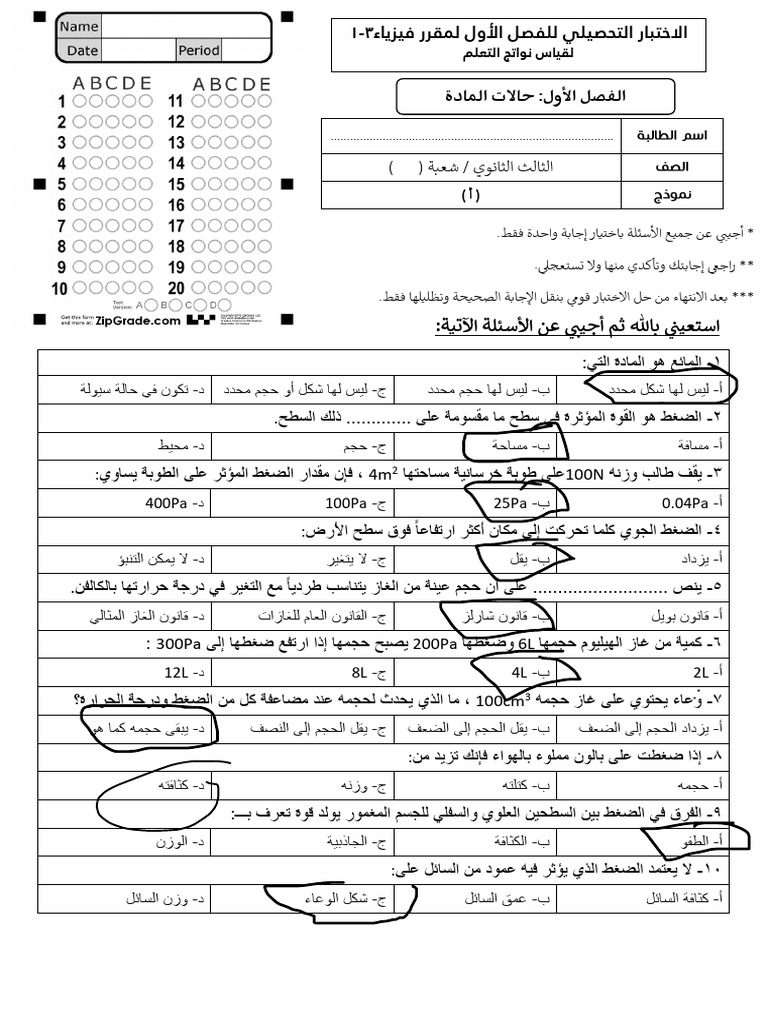 Name
Date Period
A B C D E A B C D E
1 11
2 12
3 13
4 14
5 15
6 16
7 17
8 18
9 19
10 20
Test Version: A B C D
Get this form and more at: ZipGrade.com
الاختبار التحصيلي للفصل الأول لمقرر فيزياء٣-١
لقياس نواتج التعلم
الفصل الأول: حالات المادة
اسم الطالبة ............................................................
الصف الثالث الثانوي / شعبة ( )
نموذج (أ)
* أجيبي عن جميع الأسئلة باختيار إجابة واحدة فقط.
** راجعي إجابتك وتأكدي منها ولا تستعجلي.
*** بعد الانتهاء من حل الاختبار قومي بنقل الإجابة الصحيحة وتظليلها فقط.
استعيني بالله ثم أجيبي عن الأسئلة الآتية:
١- المائع هو المادة التي:
أ- ليس لها شكل محدد ب- ليس لها حجم محدد ج- ليس لها شكل أو حجم محدد د- تكون في حالة سيولة
٢- الضغط هو القوة المؤثرة في سطح ما مقسومة على ............. ذلك السطح.
أ- مسافة ب- مساحة ج- حجم د- محيط
٣- يقف طالب وزنه 100N على طوبة خرسانية مساحتها 4m² ، فإن مقدار الضغط المؤثر على الطوبة يساوي:
أ- 0.04Pa ب- 25Pa ج- 100Pa د- 400Pa
٤- الضغط الجوي كلما تحركت إلى مكان أكثر ارتفاعاً فوق سطح الأرض:
أ- يزداد ب- يقل ج- لا يتغير د- لا يمكن التنبؤ
٥- ينص ......................... على أن حجم عينة من الغاز يتناسب طردياً مع التغير في درجة حرارتها بالكالفن.
أ- قانون بويل ب- قانون شارلز ج- القانون العام للغازات د- قانون الغاز المثالي
٦- كمية من غاز الهيليوم حجمها 6L وضغطها 200Pa يصبح حجمها إذا ارتفع ضغطها إلى 300Pa :
أ- 2L ب- 4L ج- 8L د- 12L
٧- وعاء يحتوي على غاز حجمه 100cm³ ، ما الذي يحدث لحجمه عند مضاعفة كل من الضغط ودرجة الحرارة؟
أ- يزداد الحجم إلى الضعف ب- يقل الحجم إلى الضعف ج- يقل الحجم إلى النصف د- يبقى حجمه كما هو
٨- إذا ضغطت على بالون مملوء بالهواء فإنك تزيد من:
أ- حجمه ب- كتلته ج- وزنه د- كثافته
٩- الفرق في الضغط بين السطحين العلوي والسفلي للجسم المغمور يولد قوة تعرف بـــ:
أ- الطفو ب- الكثافة ج- الجاذبية د- الوزن
١٠- لا يعتمد الضغط الذي يؤثر فيه عمود من السائل على:
أ- كثافة السائل ب- عمق السائل ج- شكل الوعاء د- وزن السائل